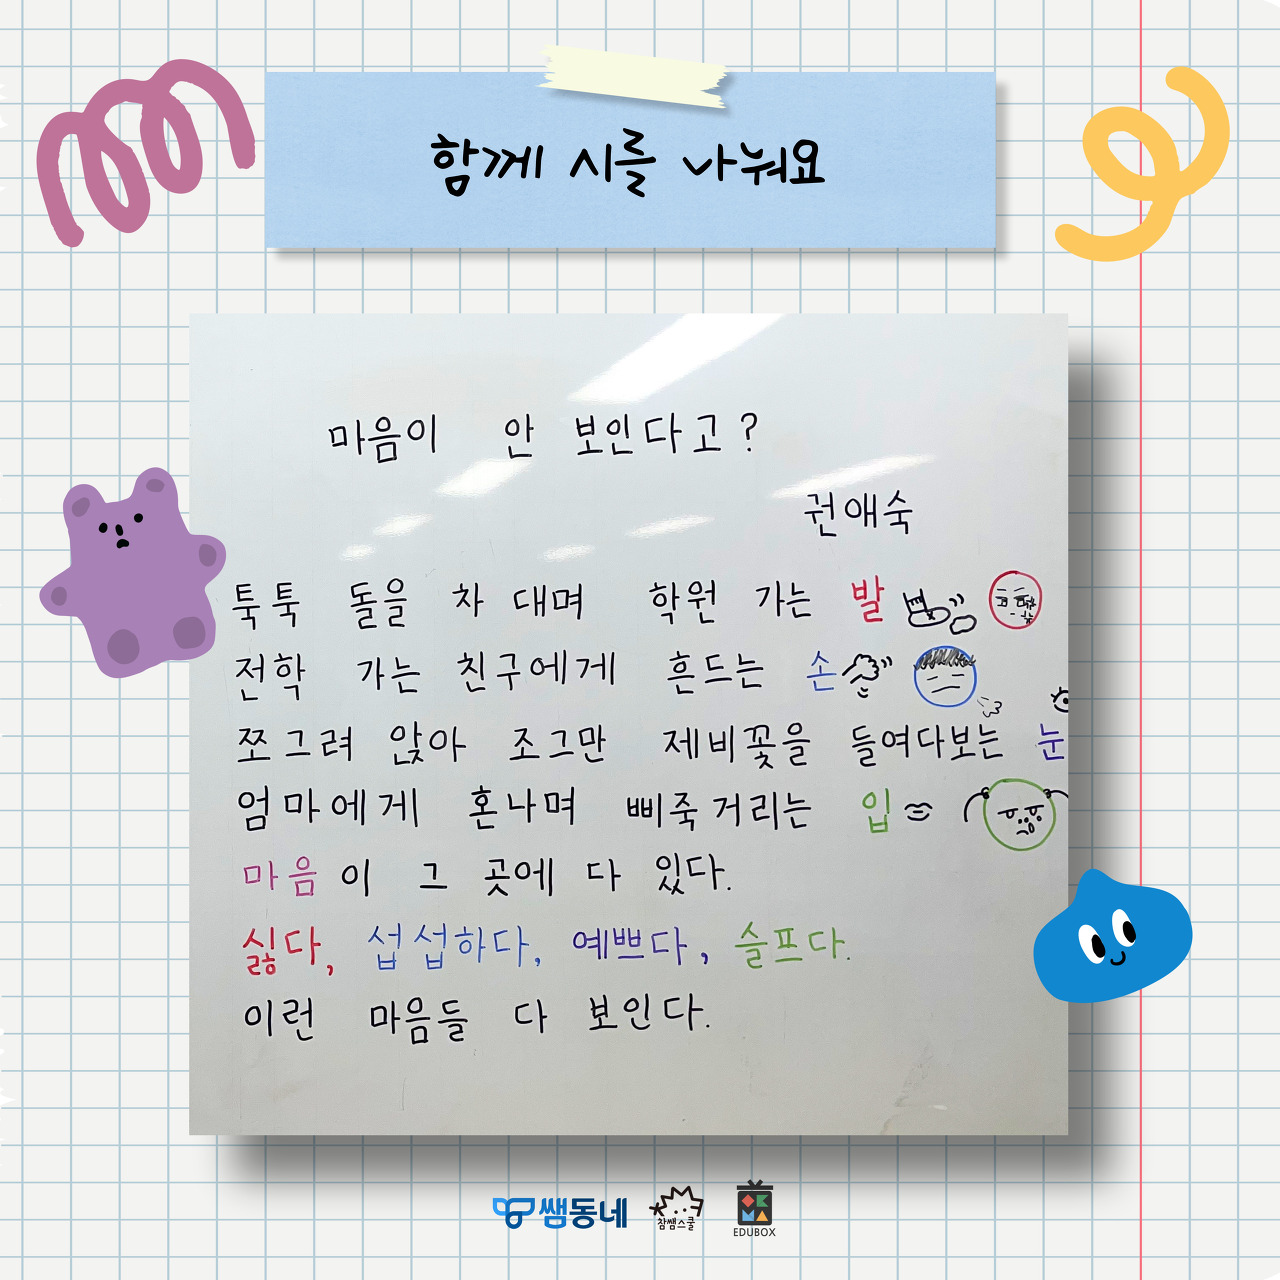 함께 시를 나눠요
마음이 안 보인다고?
권애숙
툭툭 돌을 차 대며 학원 가는 발
전학 가는 친구에게 흔드는 손
쪼그려 앉아 조그만 제비꽃을 들여다보는 눈
엄마에게 혼나며 삐죽거리는 입
마음이 그 곳에 다 있다.
싫다, 섭섭하다, 예쁘다, 슬프다.
이런 마음들 다 보인다.
쌤동네 참쌤스쿨 EDUBOX